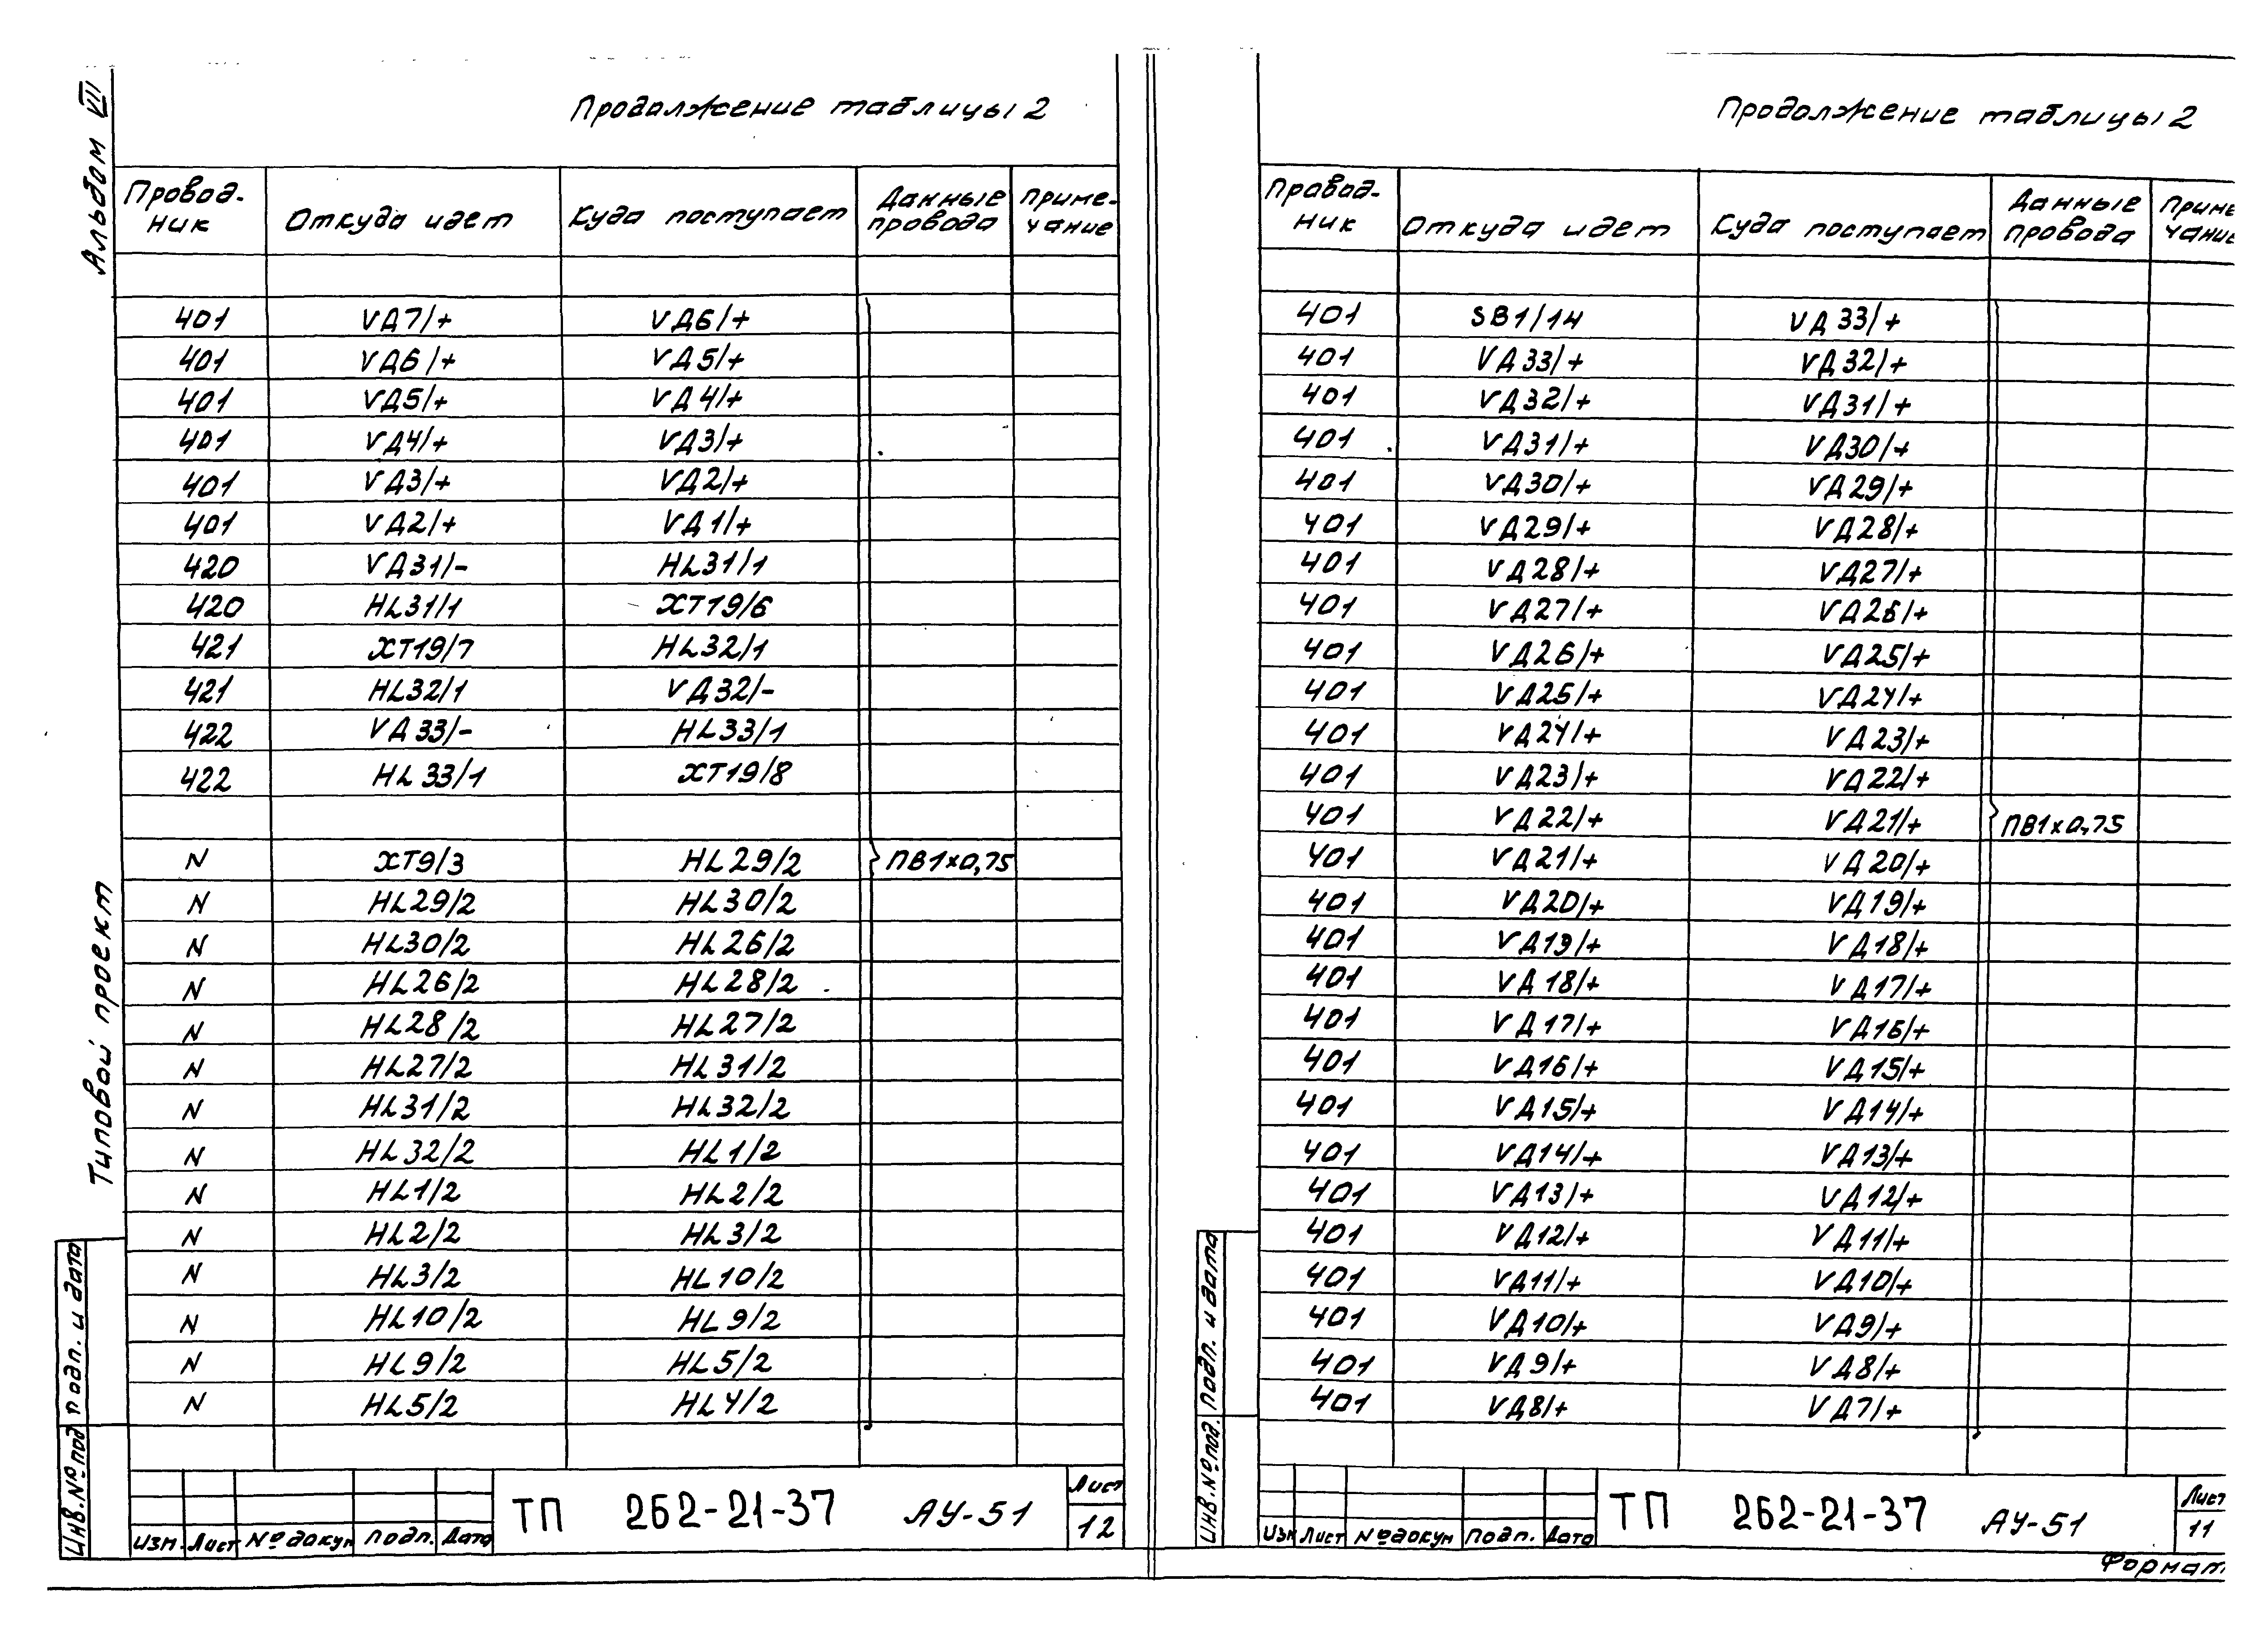 Альбом VII
Продолжение таблицы 2
Провод-ник Откуда идет Куда поступает Данные провода Приме-чание
401 VД7/+ VД6/+
401 VД6/+ VД5/+
401 VД5/+ VД4/+
401 VД4/+ VД3/+
401 VД3/+ VД2/+
401 VД2/+ VД1/+
420 VД31/- HL31/1
420 HL31/1 XT19/6
421 XT19/7 HL32/1
421 HL32/1 VД32/-
422 VД33/- HL33/1
422 HL33/1 XT19/8
N XT9/3 HL29/2 ПВ1х0,75
N HL29/2 HL30/2
N HL30/2 HL26/2
N HL26/2 HL28/2
N HL28/2 HL27/2
N HL27/2 HL31/2
N HL31/2 HL32/2
N HL32/2 HL1/2
N HL1/2 HL2/2
N HL2/2 HL3/2
N HL3/2 HL10/2
N HL10/2 HL9/2
N HL9/2 HL5/2
N HL5/2 HL4/2
Типовой проект
Инв.№ под Подп. и дата
Изм. Лист № докум Подп. Дата
ТП 262-21-37 АУ-51
Лист
12
Продолжение таблицы 2
Провод-ник Откуда идет Куда поступает Данные провода Приме-чание
401 SB1/14 VД33/+
401 VД33/+ VД32/+
401 VД32/+ VД31/+
401 VД31/+ VД30/+
401 VД30/+ VД29/+
401 VД29/+ VД28/+
401 VД28/+ VД27/+
401 VД27/+ VД26/+
401 VД26/+ VД25/+
401 VД25/+ VД24/+
401 VД24/+ VД23/+
401 VД23/+ VД22/+
401 VД22/+ VД21/+ ПВ1х0,75
401 VД21/+ VД20/+
401 VД20/+ VД19/+
401 VД19/+ VД18/+
401 VД18/+ VД17/+
401 VД17/+ VД16/+
401 VД16/+ VД15/+
401 VД15/+ VД14/+
401 VД14/+ VД13/+
401 VД13/+ VД12/+
401 VД12/+ VД11/+
401 VД11/+ VД10/+
401 VД10/+ VД9/+
401 VД9/+ VД8/+
401 VД8/+ VД7/+
Инв.№ под. Подп. и дата
Изм Лист № докум Подп. Дата
ТП 262-21-37 АУ-51
Лист
11
Формат